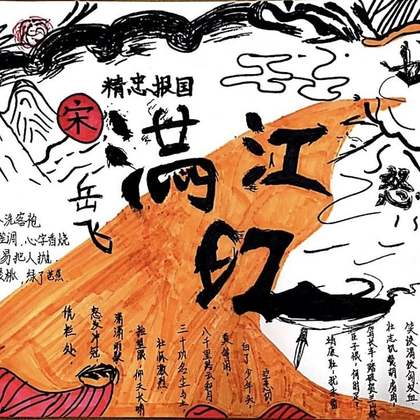 精忠报国
宋
满江红
岳飞
怒
洗客袍
笙调,心字香烧
易把人抛
绿了芭蕉
凭栏处
怒发冲冠
潇潇雨歇
抬望眼 仰天长啸
壮怀激烈
三十功名尘与土
八千里路云和月
莫等闲
白了少年头
空悲切
靖康耻 犹未雪
臣子恨 何时灭
驾长车 踏破贺兰
壮志饥餐胡虏肉
笑谈渴饮匈奴血